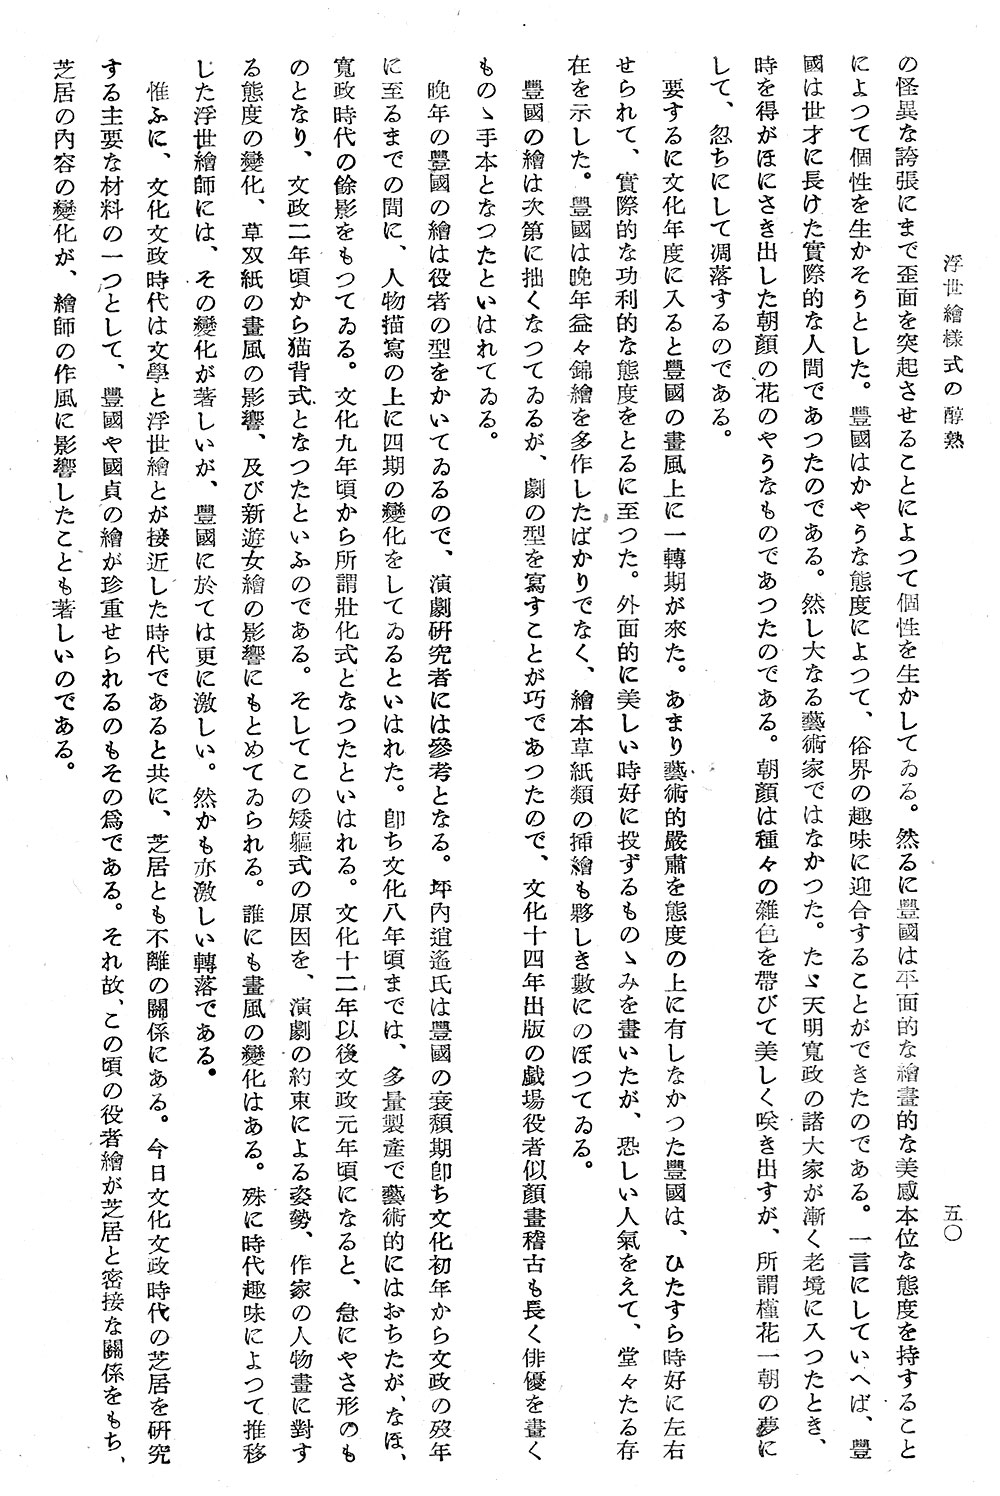 浮世繪樣式の醇熟
五〇
の怪異な誇張にまで歪面を突起させることによつて個性を生かしてゐる。然るに豐國は平面的な繪畫的な美感本位な態度を持すること
によつて個性を生かそうとした。豐國はかやうな態度によつて、俗界の趣味に迎合することができたのである。一言にしていへば、豐
國は世才に長けた實際的な人間であつたのである。然し大なる藝術家ではなかつた。たゞ天明寬政の諸大家が漸く老境に入つたとき、
時を得がほにさき出した朝顏の花のやうなものであつたのである。朝顏は種々の雜色を帶びて美しく咲き出すが、所謂槿花一朝の夢に
して、忽ちにして凋落するのである。
要するに文化年度に入ると豐國の畫風上に一轉期が來た。あまり藝術的嚴肅を態度の上に有しなかつた豐國は、ひたすら時好に左右
せられて、實際的な功利的な態度をとるに至つた。外面的に美しい時好に投ずるものゝみを畫いたが、恐しい人氣をえて、堂々たる存
在を示した。豐國は晚年益々錦繪を多作したばかりでなく、繪本草紙類の揷繪も夥しき數にのぼつてゐる。
豐國の繪は次第に拙くなつてゐるが、劇の型を寫すことが巧であつたので、文化十四年出版の戲場役者似顏畫稽古も長く俳優を畫く
ものゝ手本となつたといはれてゐる。
晚年の豐國の繪は役者の型をかいてゐるので、演劇硏究者には參考となる。坪內逍遙氏は豐國の衰頹期卽ち文化初年から文政の歿年
に至るまでの間に、人物描寫の上に四期の變化をしてゐるといはれた。卽ち文化八年頃までは、多量製產で藝術的にはおちたが、なほ、
寬政時代の餘影をもつてゐる。文化九年頃から所謂壯化式となつたといはれる。文化十二年以後文政元年頃になると、急にやさ形のも
のとなり、文政二年頃から猫背式となつたといふのである。そしてこの矮軀式の原因を、演劇の約束による姿勢、作家の人物畫に對す
る態度の變化、草双紙の畫風の影響、及び新遊女繪の影響にもとめてゐられる。誰にも畫風の變化はある。殊に時代趣味によつて推移
した浮世繪師には、その變化が著しいが、豐國に於ては更に激しい。然かも亦激しい轉落である。
惟ふに、文化文政時代は文學と浮世繪とが接近した時代であると共に、芝居とも不離の關係にある。今日文化文政時代の芝居を硏究
する主要な材料の一つとして、豐國や國貞の繪が珍重せられるのもその爲である。それ故、この頃の役者繪が芝居と密接な關係をもち、
芝居の內容の變化が、繪師の作風に影響したことも著しいのである。